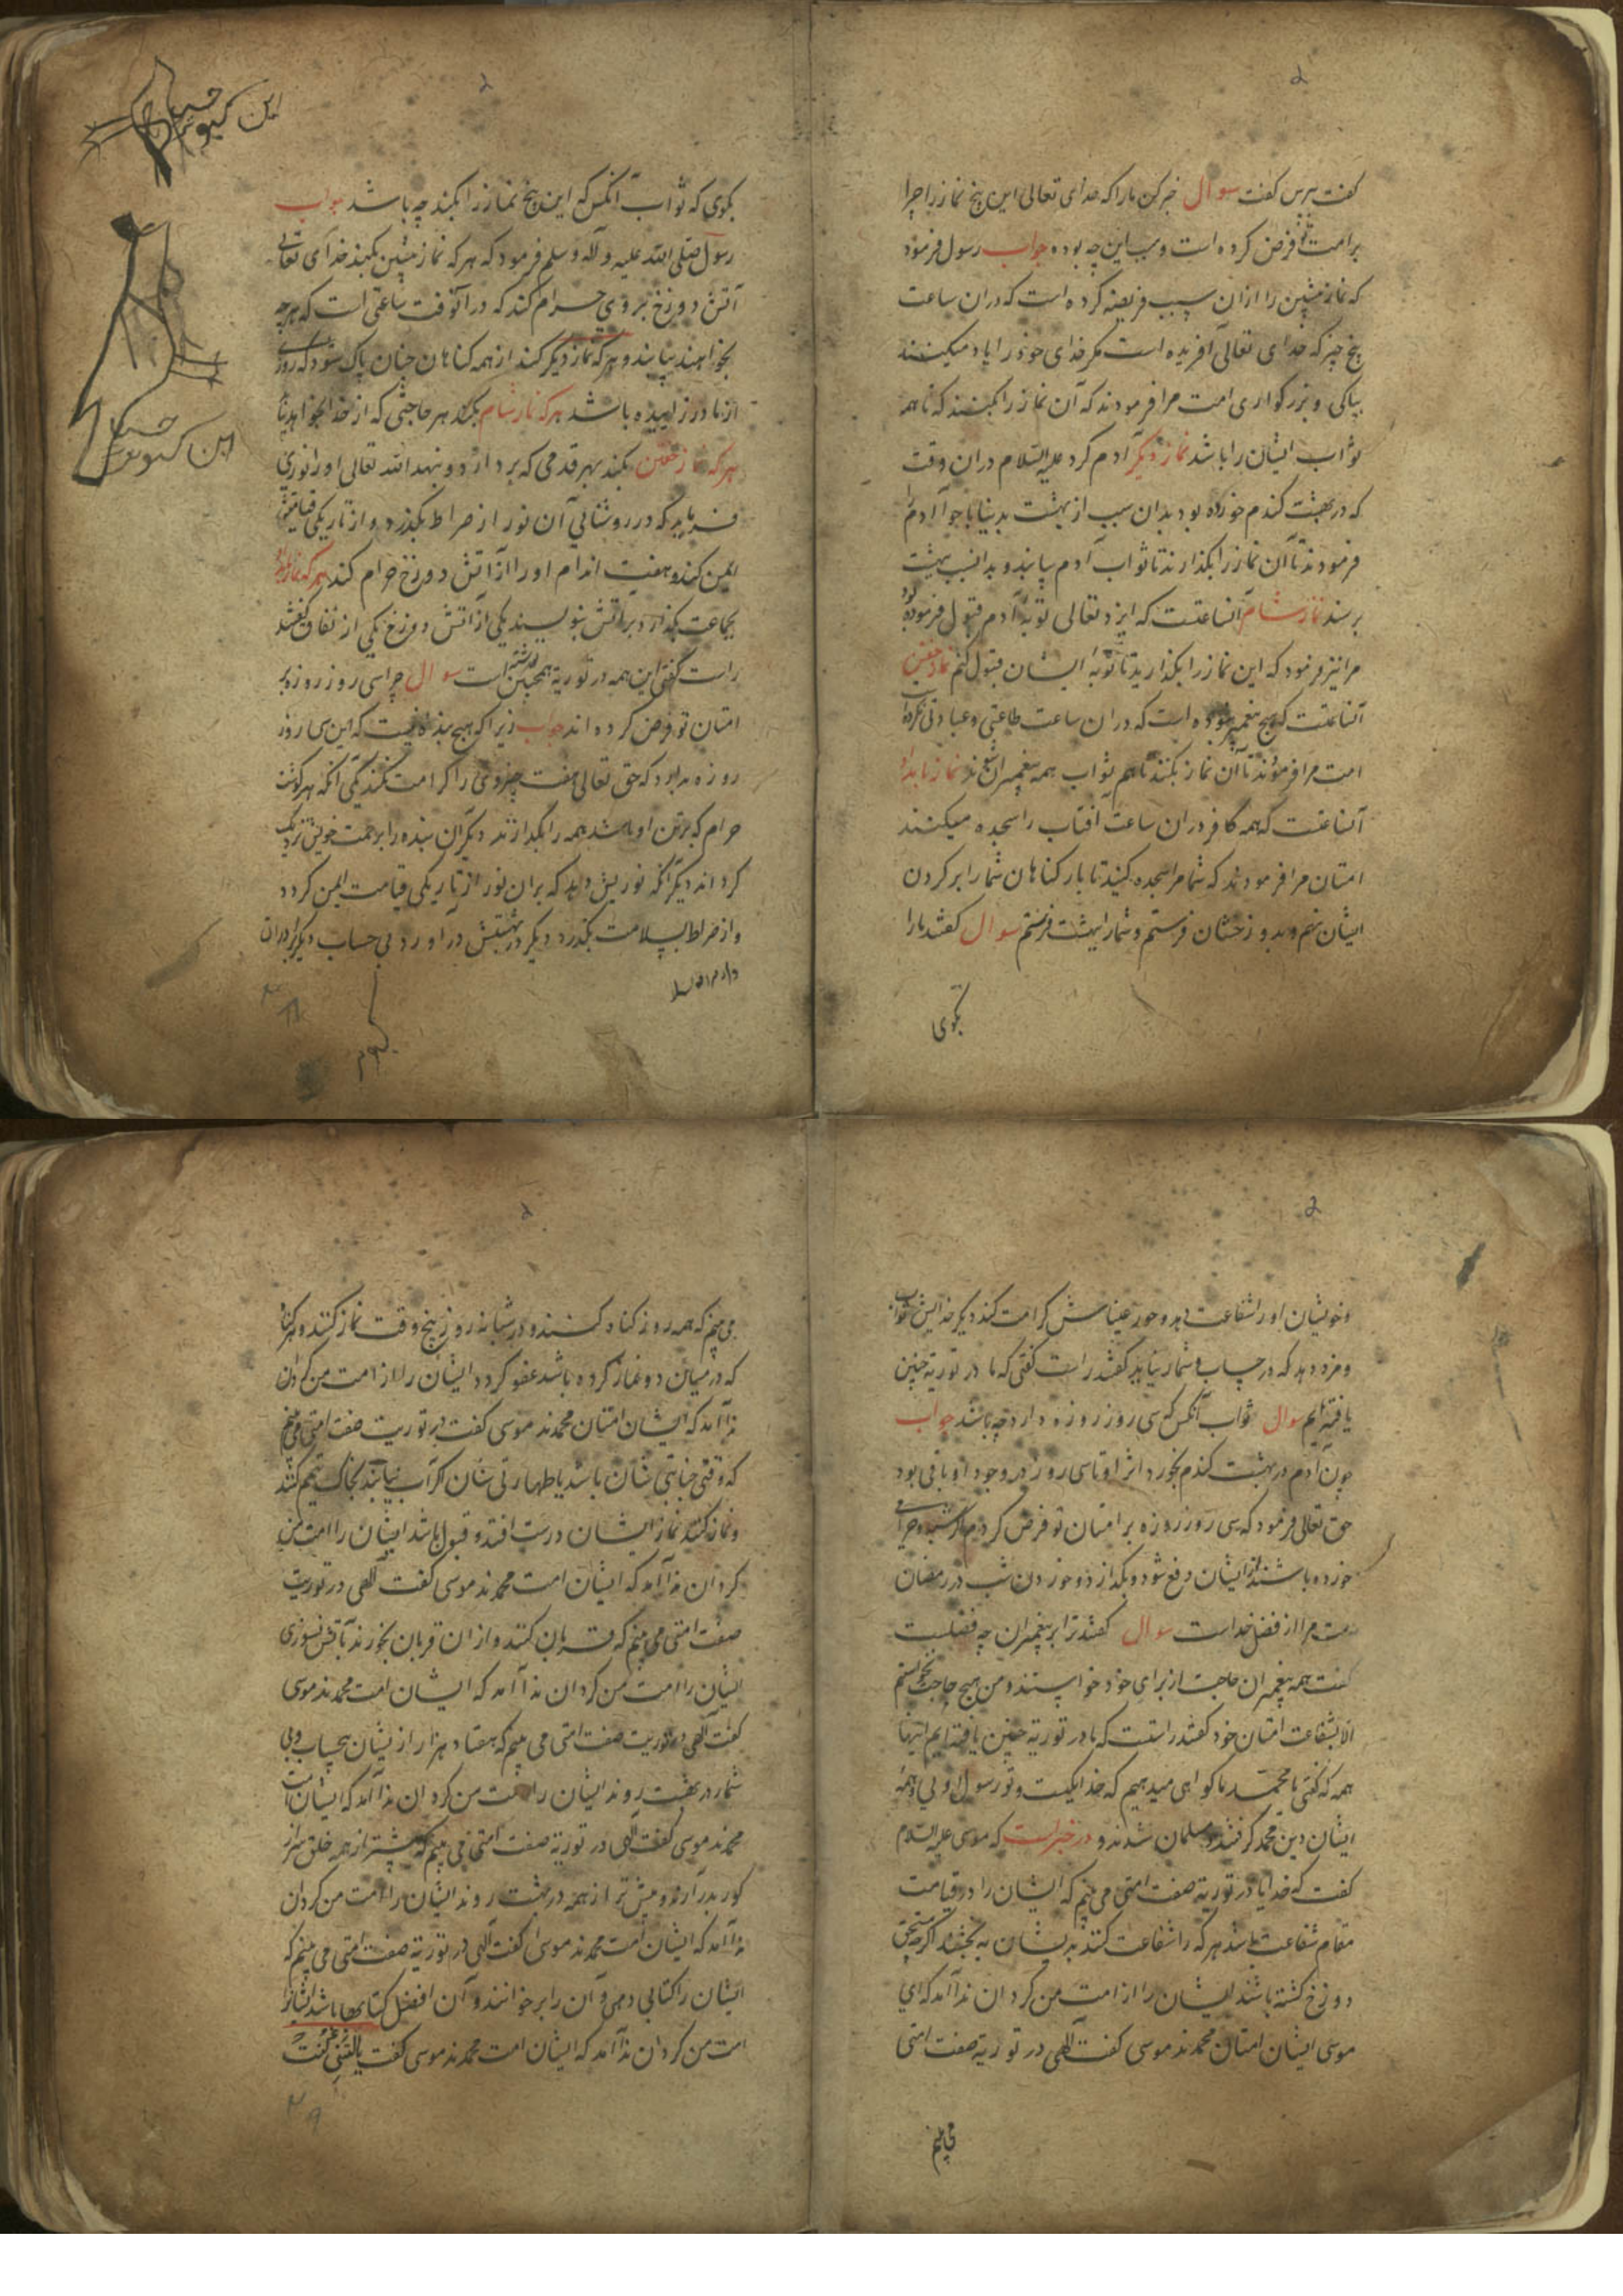 گفت بپرس گفت سوال خبر کن مارا که خدای تعالی این پنج نماز را چرا
بر امت تو فرض کرده است و سبب این چه بوده جواب رسول فرمود
که نماز پیشین را از ان سبب فریضه کرده است که دران ساعت
پنج چیز که خدای تعالی آفریده است مکر خدای خود را یاد میکنند
بپاکی و بزرکواری امت مرا فرمودند که آن نماز را بکنند که تا همه
ثواب ایشان را باشد نماز دیکر آدم کرد علیه السلام دران وقت
که در بهشت کندم خورده بود بدان سبب از بهشت بدنیا با حوا آدم را
فرمودند تا آن نماز را بکذارند تا ثواب آدم بیابند و بدانسبب بهشت
برسند نماز شام آنساعتست که ایزد تعالی توبهٔ آدم قبول فرموده بود
مرا نیز فرمود که این نماز را بکذارید تا توبه ایشان قبول کنم نماز خفتن
آنساعتست که هیچ پیغمبر نبوده است که دران ساعت طاعتی و عبادتی نکرده است
امت مرا فرمودند تا آن نماز بکنند تا هم ثواب همه پیغمبران شوند نماز بامداد
آنساعتست که همه کافر دران ساعت آفتاب را سجده میکنند
امتان مرا فرمودند که شما مرا سجده کنید تا بار کناهان شما را بر کردن
ایشان نهم و بدوزخشان فرستم و شمارا ببهشت فرستم سوال کفتند مارا
بکوی
این کبوتر
بکوی که ثواب آنکس که این پنج نماز را بکند چه باشد جواب
رسول صلی الله علیه و آله و سلم فرمود که هر که نماز پیشین بکند خدای تعالی
آتش دوزخ بر وی حرام کند که در آنوقت ساعتی است که هر چه
بخواهند بیابند و هر که نماز دیکر کند از همه کناهان چنان پاک شود که روزی
از مادر زاییده باشد هر که نماز شام بکند هر حاجتی که از خدا بخواهد بیابد
هر که نماز خفتن بکند بهر قدمی که بردارد و بنهد الله تعالی او را نوری
فرماید که در روشنائی آن نور از صراط بکذرد و از تاریکی قیامتش
ایمن کند و هفت اندام او را از آتش دوزخ حرام کند هر که نماز بامداد
بجماعت بکذارد براتش بنویسند یکی از آتش دوزخ یکی از نفاق کفتند
راست کفتی این همه در توریة همچنین نوشته است سوال چرا سی روز روزه بر
امتان تو فرض کرده اند جواب زیرا که هیچ بنده نیست که این سی روز
روزه بدارد که حق تعالی هفت چیز وی را کرامت نکند یکی آنکه هر کوشت
حرام که بر تن او باشد همه را بکدازند دیکر آن بنده را برحمت خویش نزدیک
کرداند دیکر آنکه نوریش دهد که بران نور از تاریکی قیامت ایمن کردد
و از صراط بسلامت بکذرد دیکر در بهشتش درآورد بی حساب دیکر برادران
این کبوتر
۲۸
و خویشان اورا شفاعت دهد و حور عیناش کرامت کند دیکر خدایش ثواب
و مزد دهد که در حساب و شمار نیاید کفتند راست کفتی که ما در توریة چنین
یافته ایم سوال ثواب آنکس که سی روز روزه دارد چه باشد جواب
چون آدم در بهشت کندم بخورد اثر او تا سی روز در وجود او باقی بود
حق تعالی فرمود که سی روز روزه بر امتان تو فرض کردم تا هر شبه و حرامی
خورده باشند از ایشان دفع شود و بکدازد و خوردن شب در رمضان
امت مرا از فضل خداست سوال کفتند ترا بر پیغمبران چه فضلست
کفت همه پیغمبران حاجت از برای خود خواستند و من هیچ حاجت نخواستم
الا بشفاعت امتان خود کفتند راستست که ما در توریة چنین یافته ایم اینها
همه که کفتی یا محمد ما کواهی میدهیم که خدا یکیست و تو رسول اوئی و همه
ایشان دین محمد کرفتند و مسلمان شدند و در خبر است که موسی علیه السلام
کفت که خدایا در توریة صفت امتی می بینم که ایشان را در قیامت
مقام شفاعت باشد هر که را شفاعت کنند بدیشان به بخشند اکر چه مستحق
دوزخ کشته باشند ایشان را از امت من کردان ندا آمد که ای
موسی ایشان امتان محمدند موسی کفت آلهی در توریة صفت امتی
می بینم
می بینم که همه روز کناه کنند و در شبانه روز پنج وقت نماز کنند و هر کناه
که در میان دو نماز کرده باشد عفو کردد ایشان را از امت من کردان
ندا آمد که ایشان امتان محمدند موسی کفت در توریت صفت امتی می بینم
که وقتی جنابتی شان باشد یا طهارتی شان اکر آب نیابند بخاک تیمم کنند
و نماز کنند نماز ایشان درست افتد و قبول باشد ایشان را امت من
کردان ندا آمد که ایشان امت محمدند موسی کفت آلهی در توریت
صفت امتی می بینم که قربان کنند و از ان قربان بخورند تا بآتش نسوزی
ایشان را امت من کردان ندا آمد که ایشان امت محمدند موسی
کفت آلهی در توریت صفت امتی می بینم که هفتاد هزار از یشان بحساب و بی
شمار در بهشت روند ایشان را امت من کردان ندا آمد که ایشان امت
محمدند موسی کفت آلهی در توریة صفت امتی می بینم که پیشتر از همه خلق سر از
کور بدر آرند و پیش تر از همه در بهشت روند ایشان را امت من کردان
ندا آمد که ایشان امت محمدند موسی کفت آلهی در توریة صفت امتی می بینم که
ایشان را کتابی دهی و آن را بر خوانند و آن افضل کتابها باشد ایشانرا
امت من کردان ندا آمد که ایشان امت محمدند موسی کفت
۲۹